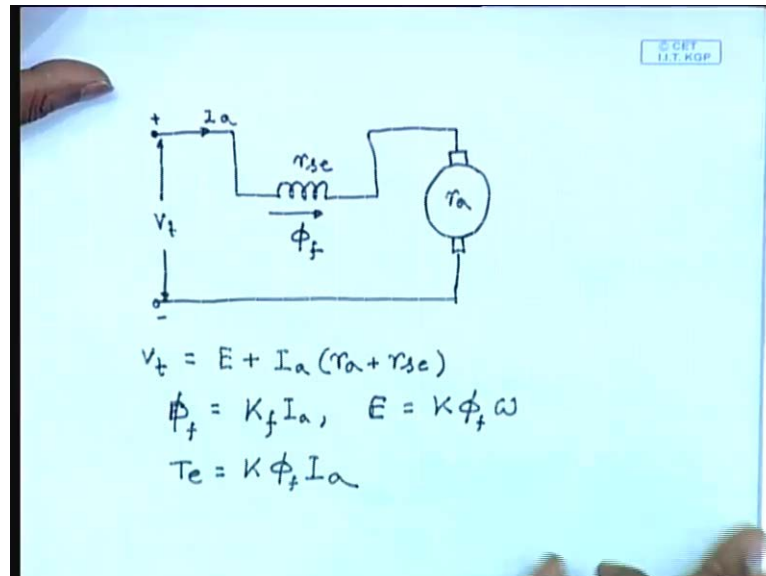 © CET
I.I.T. KGP
+ Ia
rse
ra
Vt
ϕf
-
Vt = E + Ia (ra + rse)
ϕf = Kf Ia, E = K ϕf ω
Te = K ϕf Ia